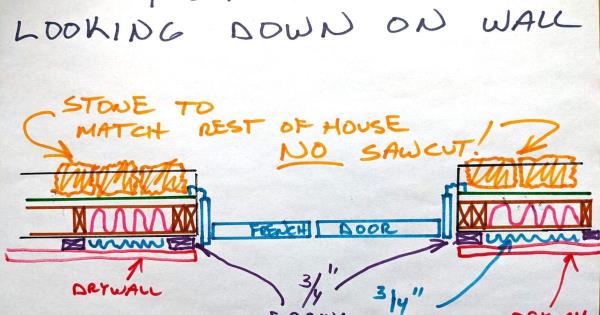 LOOKING DOWN ON WALL
STONE TO
MATCH REST OF HOUSE
NO SAWCUT!
FRENCH DOOR
DRYWALL
3/4"
3/4"